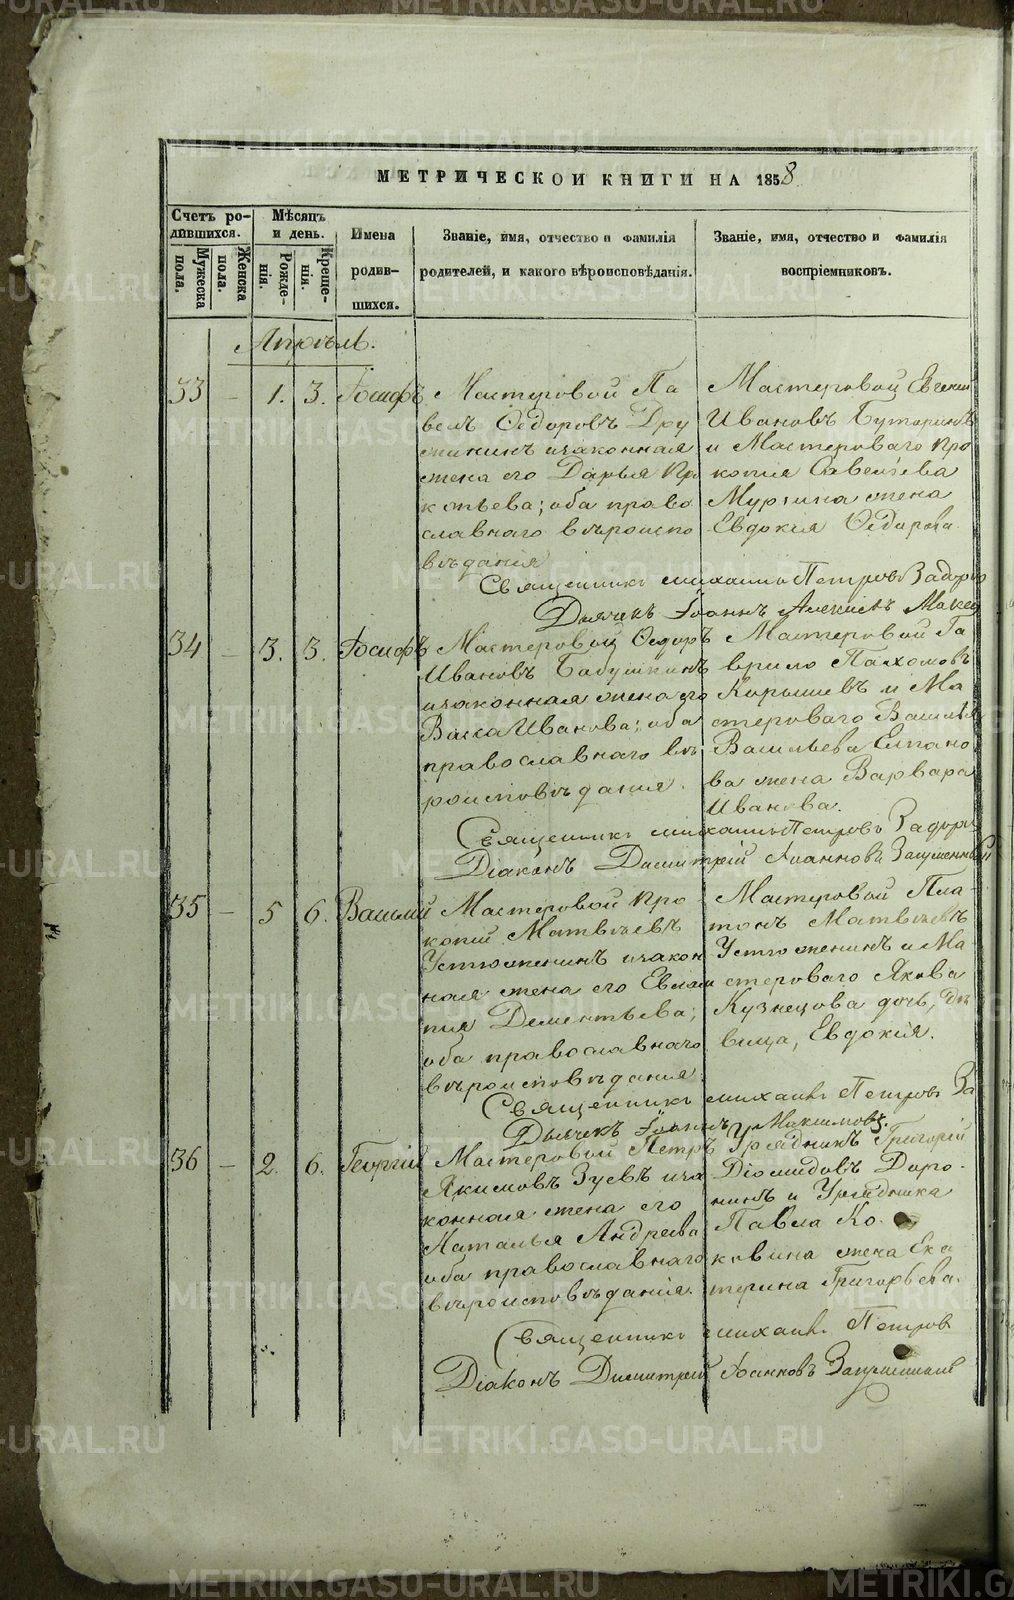 МЕТРИЧЕСКОЙ КНИГИ НА 1858
Счетъ ро-
дившихся.
Мужеска
пола.
Женска
пола.
Мѣсяцъ
и день.
Рожде-
нія.
Креще-
нія.
Имена
родив-
шихся.
Званіе, имя, отчество и фамилія
родителей, и какого вѣроисповѣданія.
Званіе, имя, отчество и фамилія
воспріемниковъ.
Апрѣль.
33 – 1. 3. Іосифъ
Мастеровой Па
велъ Ѳедоровъ Дру
жининъ и законная
жена его Дарья Про
копьева; оба право
славнаго вѣроиспо
вѣданія
Мастеровой Евгений
Ивановъ Бутаринъ
и Мастероваго Про
копія Савельева
Мурзина жена
Евдокія Ѳедорова.
Священникъ Михаилъ Петровъ Задор
Дьячекъ Іоаннъ Алексіевъ
34 – 3. 3. Іосифъ
Мастеровой Ѳедоръ
Ивановъ Бабушкинъ
и законная жена его
Васса Иванова; оба
православнаго вѣ
роисповѣданія.
Мастеровой Га
врило Пахомовъ
и Ма
стероваго Василья
Васильева
ва жена Варвара
Иванова.
Священникъ Михаилъ Петровъ Задор
Діаконъ Димитрій Іоанновъ
35 – 5 6. Василій
Мастеровой Про
копій Матвѣевъ
Устюженинъ и закон
ная жена его Евлам
пия Дементьева;
оба православнаго
вѣроисповѣданія.
Мастеровой Пла-
тонъ Матвѣевъ
Устюженинъ и Ма
стероваго Якова
Кузнецова дочь, дѣ
вица, Евдокія.
Священникъ Михаилъ Петровъ За
Дьячекъ Іоаннъ Максимовъ.
36 – 2. 6. Георгій
Мастеровой Петръ
Якимовъ Зуевъ и за
конная жена его
Наталья Андреева
оба православнаго
вѣроисповѣданія.
Урядникъ Григорій
Діомидовъ Доро-
нинъ и Урядника
Павла Ко-
ковина жена Ека
терина Григорьева.
Священникъ Михаилъ Петровъ
Діаконъ Димитрій Іоанновъ
METRIKI.GASO-URAL.RU